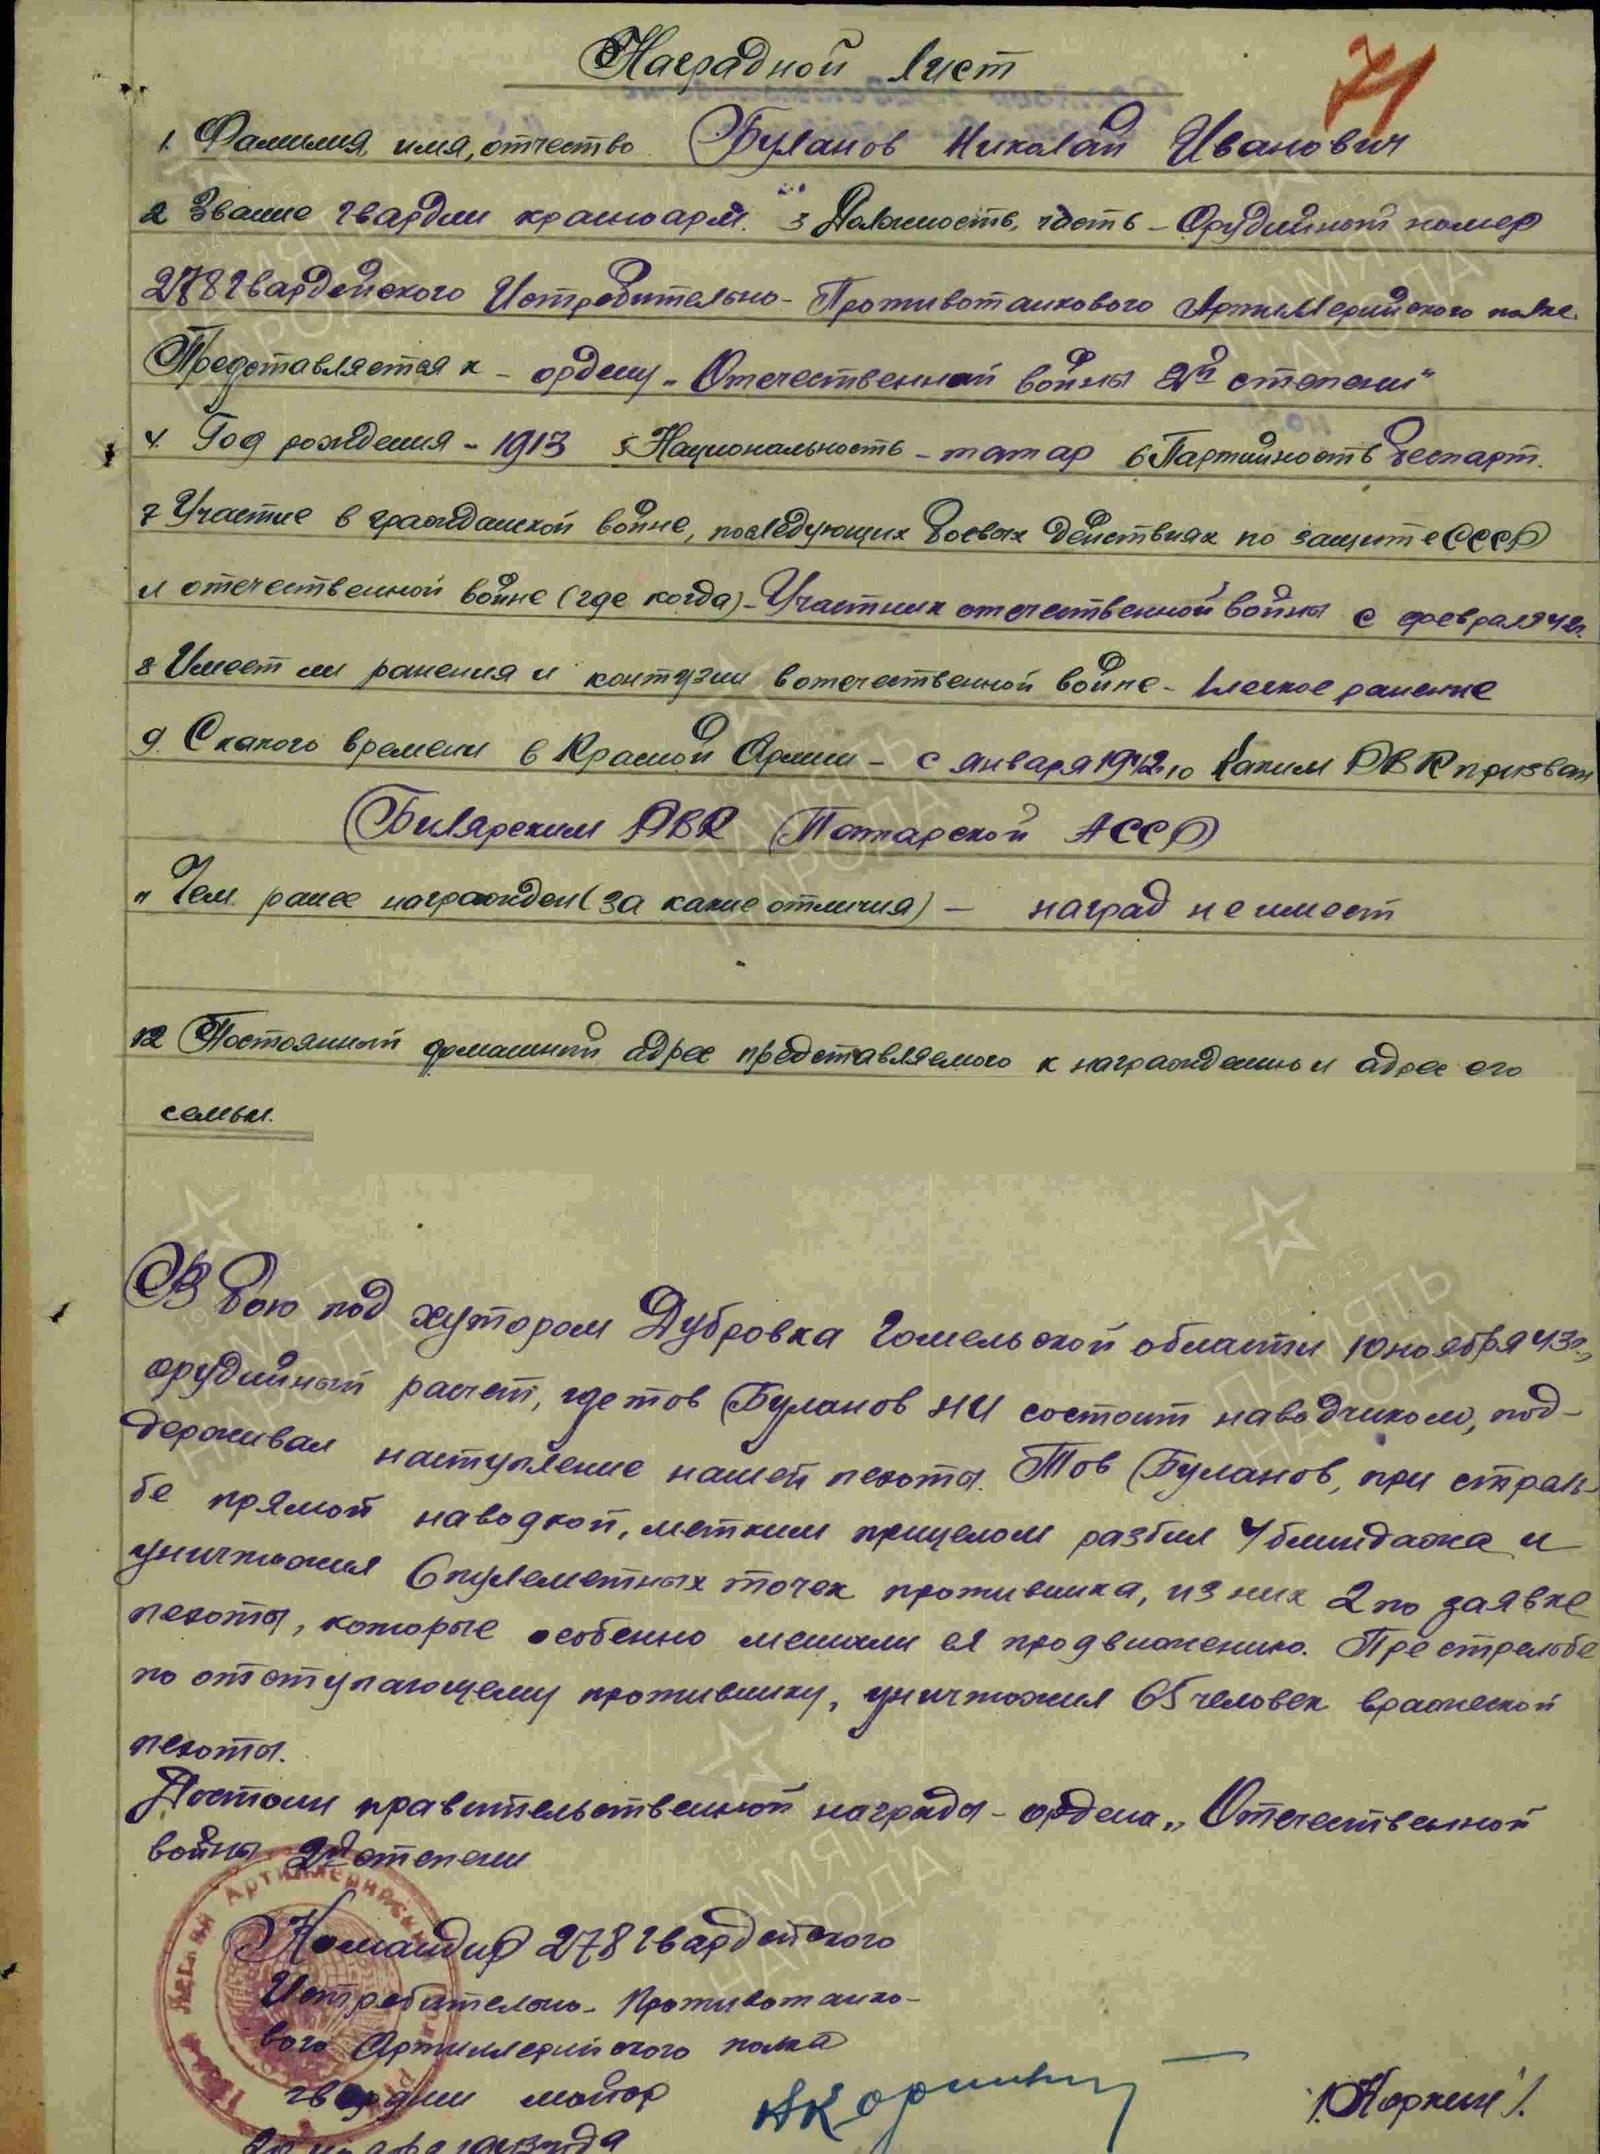 Наградной лист
71
1. Фамилия, имя, отчество Буланов Николай Иванович
2 Звание гвардии красноарм. 3 Должность, часть - Орудийный номер
278 Гвардейского Истребительно- Противотанкового Артиллерийского полка.
Представляется к - ордену „Отечественной войны 2й степени"
4. Год рождения - 1913 5 Национальность - татар 6 Партийность беспарт.
7 Участие в гражданской войне, последующих боевых действиях по защите СССР
и отечественной войне (где когда) - Участник отечественной войны с февраля 42г.
8 Имеет ли ранения и контузии в отечественной войне - 1 легкое ранение
9. С какого времени в Красной Армии - с января 1942г. 10 Каким РВК призван
Билярским РВК Татарской АССР
11 Чем ранее награжден (за какие отличия) - наград не имеет
12 Постоянный домашний адрес представляемого к награждению и адрес его
семьи.
В бою под хутором Дубровка Гомельской области 10 ноября 43г.,
орудийный расчет, где тов Буланов НИ состоит наводчиком, под-
держивал наступление нашей пехоты. Тов Буланов, при стрель-
бе прямой наводкой, метким прицелом разбил 4 блиндажа и
уничтожил 6 пулеметных точек противника, из них 2 по заявке
пехоты, которые особенно мешали ея продвижению. При стрельбе
по отступающему противнику, уничтожил 65 человек вражеской
пехоты.
Достоин правительственной награды - ордена „Отечественной
войны 2й степени
Командир 278 Гвардейского
Истребительно- Противотанко-
вого Артиллерийского полка
гвардии майор
/Коркин/.
1943 года